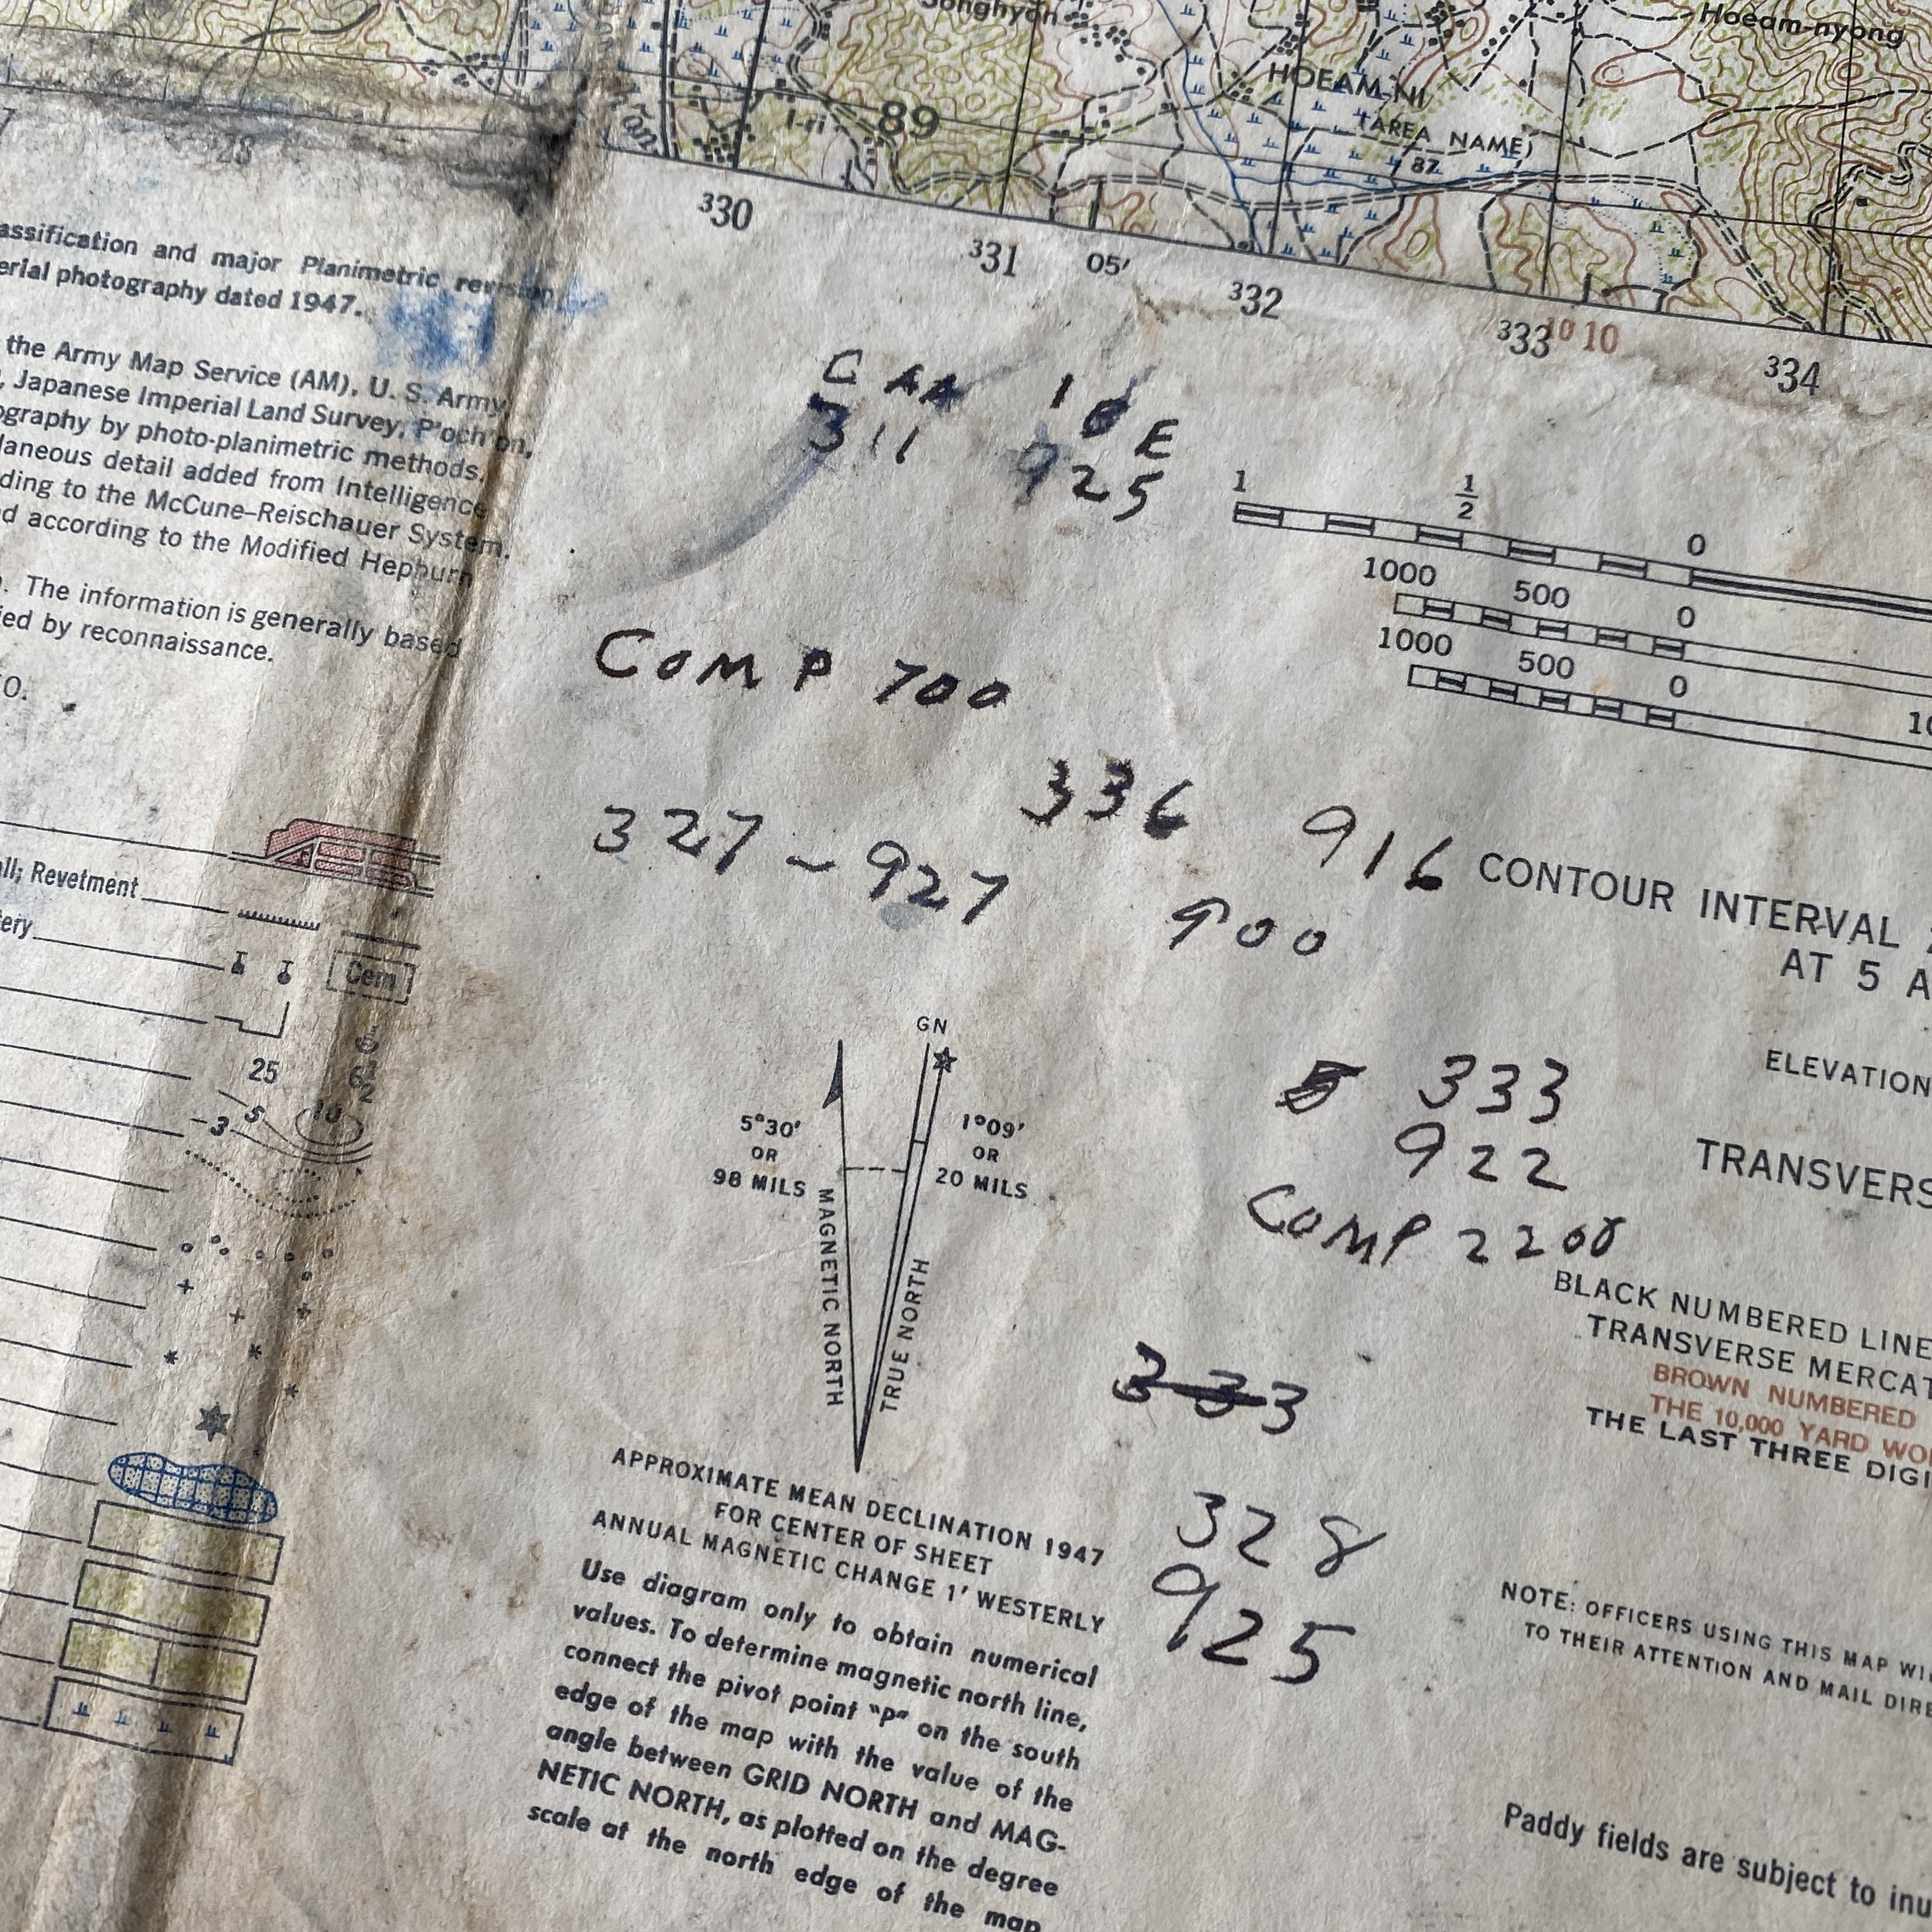 Hoeam-nyong
HOEAM-NI
(AREA NAME)
I-ri
89
87
28
330
331
05'
332
333
10 10
334
assification and major Planimetric revision
erial photography dated 1947.
the Army Map Service (AM), U. S. Army,
, Japanese Imperial Land Survey, P'och'on,
ography by photo-planimetric methods.
laneous detail added from Intelligence
ding to the McCune-Reischauer System.
d according to the Modified Hepburn
. The information is generally based
ied by reconnaissance.
C AA 10 E
311 925
1 1/2 0
1000 500 0
1000 500 0
COMP 700
336 916
327 - 927
900
all; Revetment
tery
Cem
25
6 1/2
5
10
-3
CONTOUR INTERVAL
AT 5 A
ELEVATION
TRANSVERS
333
922
COMP 2200
GN
5°30'
OR
98 MILS
1°09'
OR
20 MILS
MAGNETIC NORTH
TRUE NORTH
BLACK NUMBERED LINE
TRANSVERSE MERCAT
BROWN NUMBERED
THE 10,000 YARD WO
THE LAST THREE DIGI
333
328
925
APPROXIMATE MEAN DECLINATION 1947
FOR CENTER OF SHEET
ANNUAL MAGNETIC CHANGE 1' WESTERLY
Use diagram only to obtain numerical
values. To determine magnetic north line,
connect the pivot point "P" on the south
edge of the map with the value of the
angle between GRID NORTH and MAG-
NETIC NORTH, as plotted on the degree
scale at the north edge of the map
NOTE: OFFICERS USING THIS MAP WI
TO THEIR ATTENTION AND MAIL DIRE
Paddy fields are subject to inu